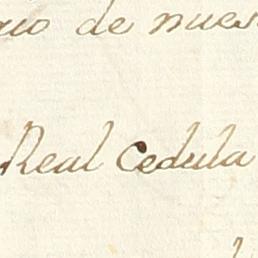 de nues
Real Cedula